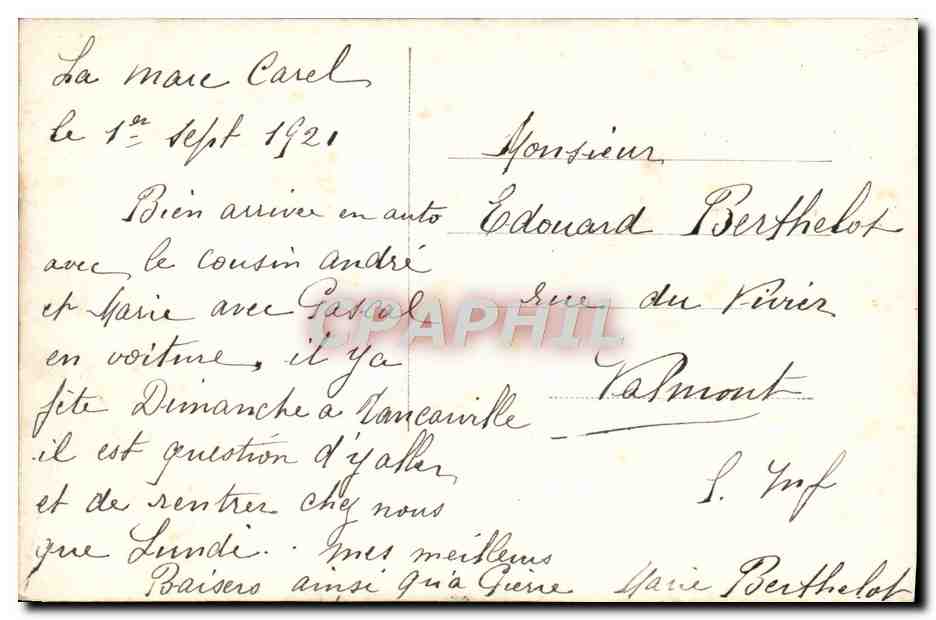 La mare Carel
le 1er Sept 1921
Bien arrivée en auto
avec le cousin andré
et Marie avec Pascal
en voiture, il ya
fête Dimanche a Tancarville
il est question d'y aller
et de rentrer chez nous
que Lundi.. mes meilleurs
Baisers ainsi qu'a Pierre Marie Berthelot
Monsieur
Edouard Berthelot
rue du Vivier
Valmont
S. Inf
CPAPHIL